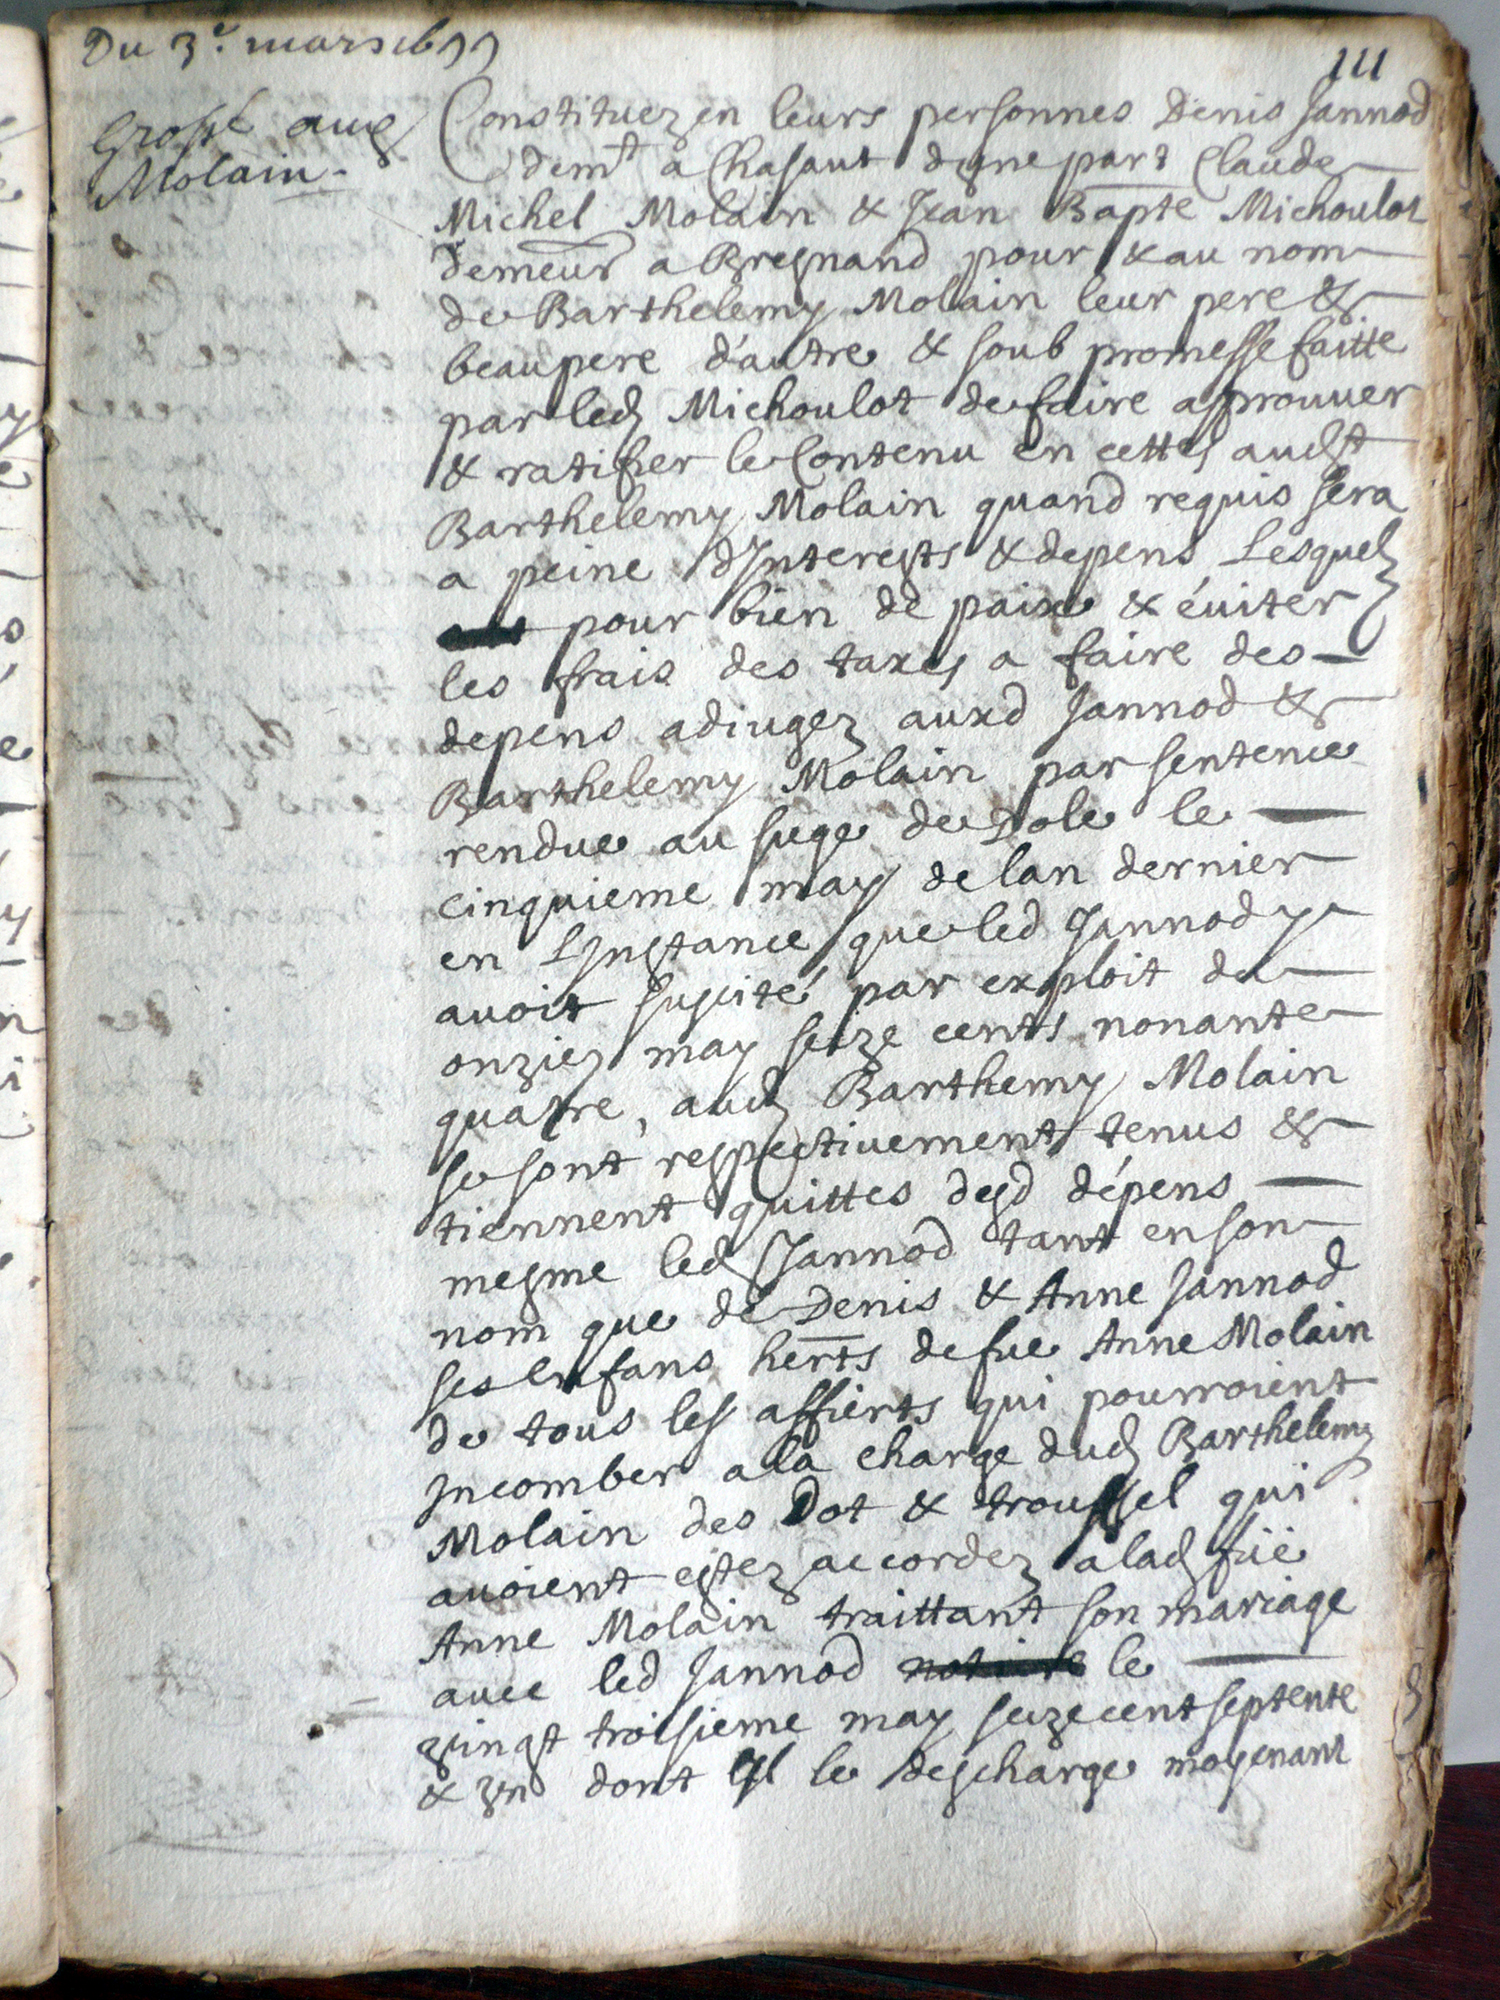 Du 3e mars 1699
111
Grossé aux
Molain -
Constituez en leurs personnes Denis Jannod
demt a Chasaut dune part Claude
Michel Molain & Jean Bapte Michoulot
demeurt a Bregnand pour & au nom
de Barthelemy Molain leur pere &
beaupere d'autre & soub promesse faitte
par led Michoulot de faire approuver
& ratifier le Contenu en cettes audt
Barthelemy Molain quand requis sera
a peine dInterests & depens Lesquelz
pour bien de paix & éuiter
les frais des taxes a faire des
depens adiugez auxd Jannod &
Barthelemy Molain par sentence
rendue au siege de Dole le
cinquieme may de lan dernier
en LInstance que led Jannod y
auoit suscité par exploit du
onzie may seize cents nonante
quatre, aud Barthemy Molain
se sont respectiuement tenus &
tiennent quittes desd dépens
mesme led Jannod tant en son
nom que de Denis & Anne Jannod
ses enfans herts de fue Anne Molain
de tous les affierts qui pourroient
Incomber a la charge dud Barthelemy
Molain des Dot & troussel qui
auoient estez accordez a lad füe
Anne Molain traittant son mariage
auec led Jannod le
vingt troisieme may seize cent septente
& vn dont Il le descharge moyenant